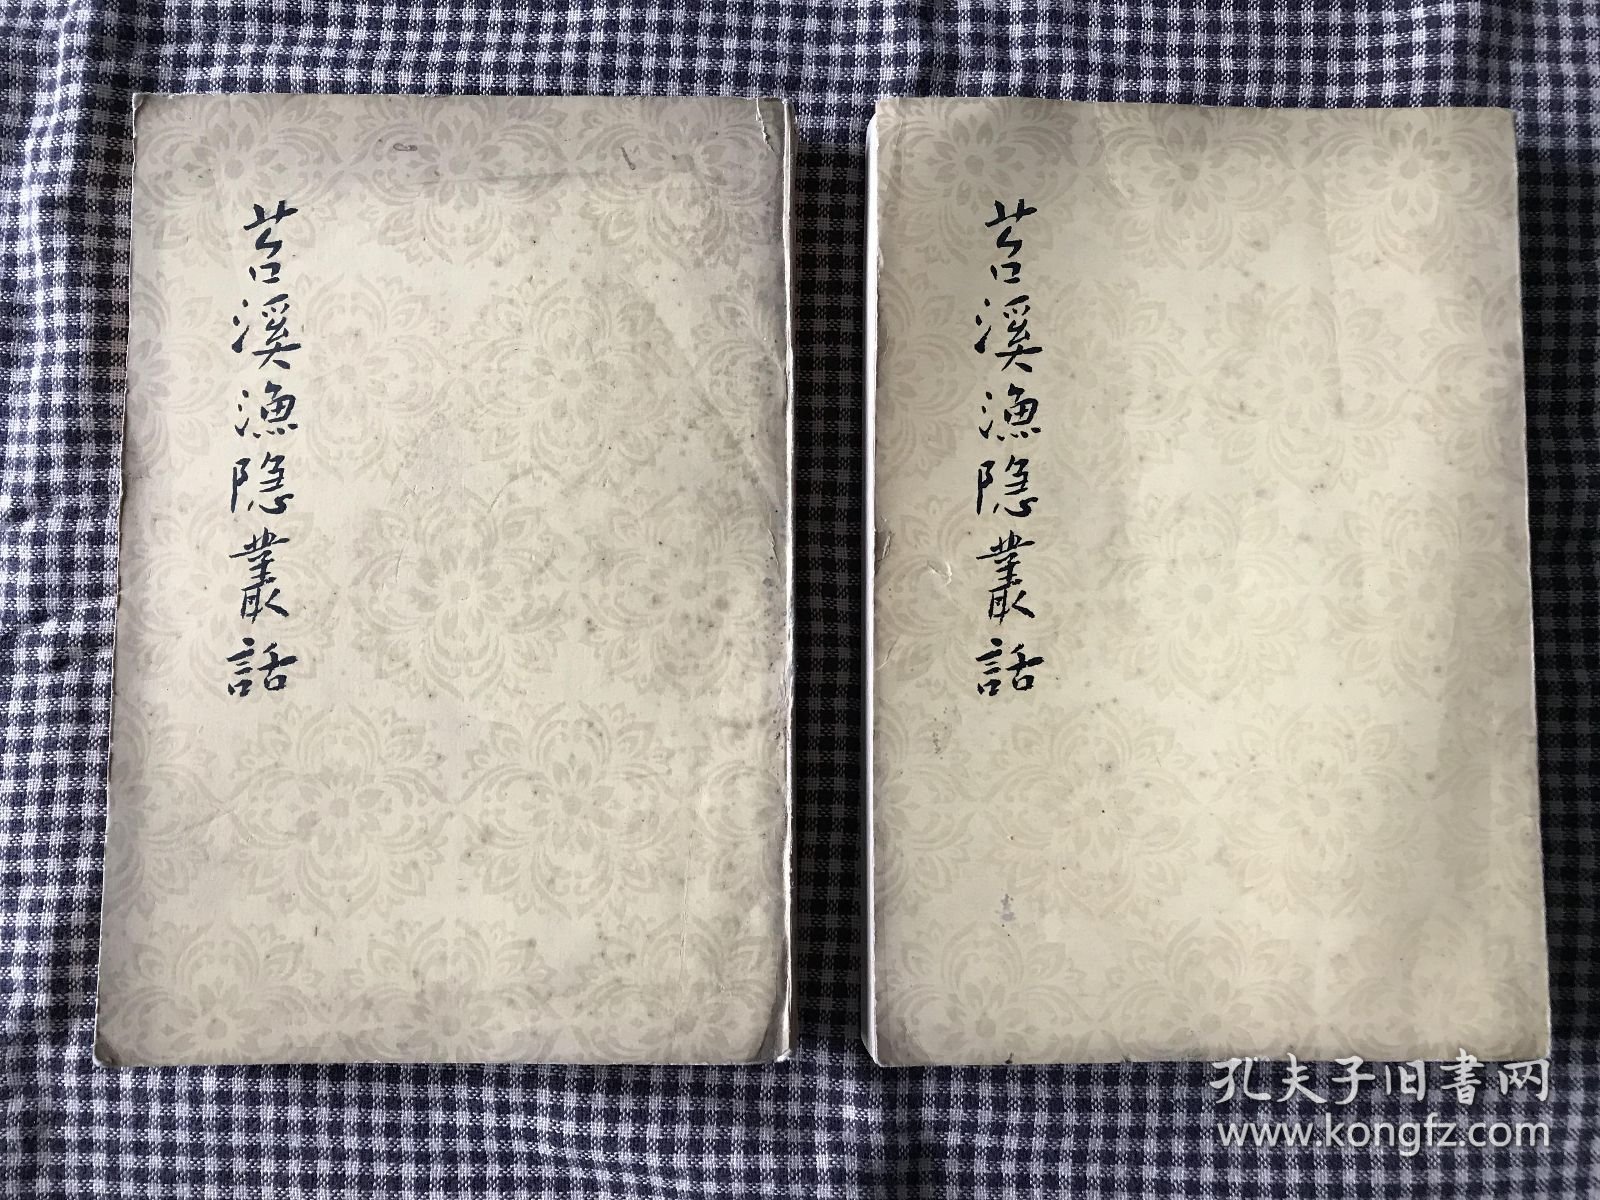 苕溪漁隐叢話
苕溪漁隐叢話
孔夫子旧書网
www.kongfz.com